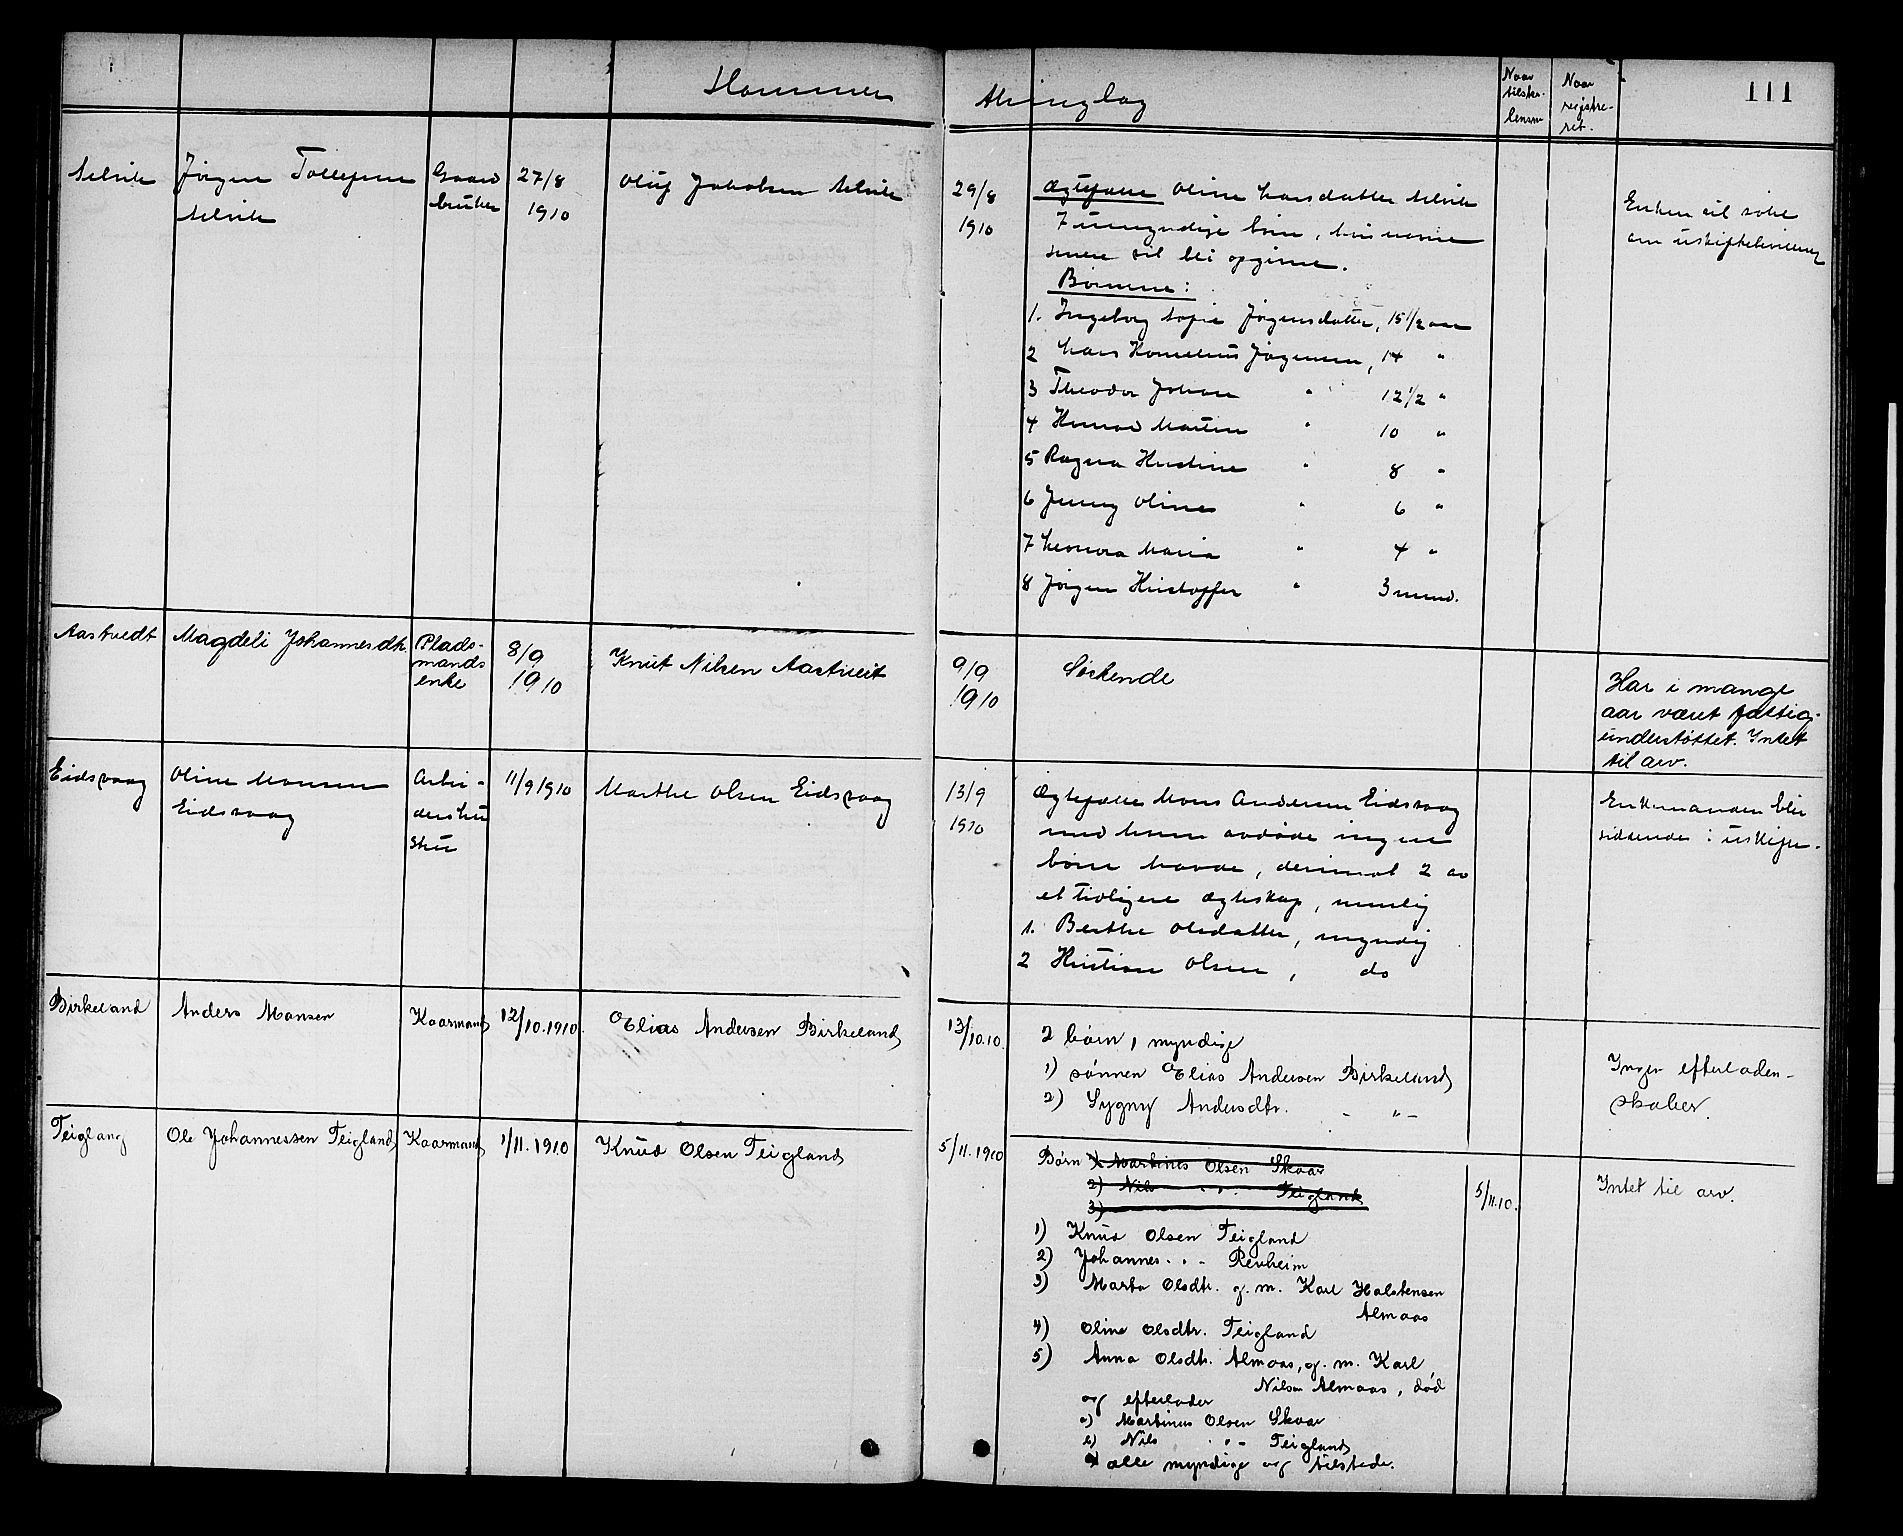 Hammer
Alenglag
Naar
tilsken-
lensm
Naar
registre-
ret.
111
Milde
Jörgen Tollefsen
Milde
Gaard
bruker
27/8
1910
Oluf Jakobsen Milde
29/8
1910
Ægtefælle Oline Larsdatter
7 umyndige börn, hvis navne
senere vil bli opgivne.
Börnene:
1. Ingeborg Sofie Jörgensdatter, 15 1/2 aar
2 Lars Kornelius Jörgensen, 14 "
3 Theodor Johan " 12 1/2 "
4 Konrad Martin " 10 "
5 Ragna Kristine " 8 "
6 Jenny Oline " 6 "
7 Leonora Maria " 4 "
8 Jörgen Kristoffer " 3 maand.
Enken vil söke
om uskiftebevilling
Aastvedt
Magdeli Johannesdtr
Plads-
mands
enke
8/9
1910
Knut Nilsen Aastveit
9/9
1910
Söskende
Har i mange
aar været fattig-
understöttet. Intet
til arv.
Eidsvaag
Oline Monsen
Eidsvaag
Arbei-
derhu
stru
11/9 1910
Marthe Olsen Eidsvaag
13/9
1910
Ægtefælle Mons Andersen Eidsvaag
med hvem avdöde ingen
börn havde, derimot 2 av
et tidligere ægteskap, nemlig
1. Berthe Olsdatter, myndig
2 Kristian Olsen, do
Enkemanden blir
siddende i uskifte.
Birkeland
Anders Monsen
Kaarmand
12/10.1910.
Elias Andersen Birkeland
13/10.10.
2 börn, myndige
1) sönnen Elias Andersen Birkeland
2) Sygny Andersdtr. - " -
Ingen efterladen-
skaber.
Teigland
Ole Johannessen Teigland
Kaarmand
1/11.1910
Knud Olsen Teigland
5/11.1910
Börn 1) Martines Olsen Skaar
2) Nils " " Teigland
3)
1) Knud Olsen Teigland
2) Johannes " - Revheim
3) Marta Olsdtr. g. m. Karl Halstensen
Almaas
4) Oline Olsdtr. Teigland
5) Anna Olsdtr. Almaas, g. m. Karl
Nilsen Almaas, död
og efterlader
a) Martinus Olsen Skaar
b) Nils " - Teigland
alle myndige og tilstede.
5/11.10.
Intet til arv.